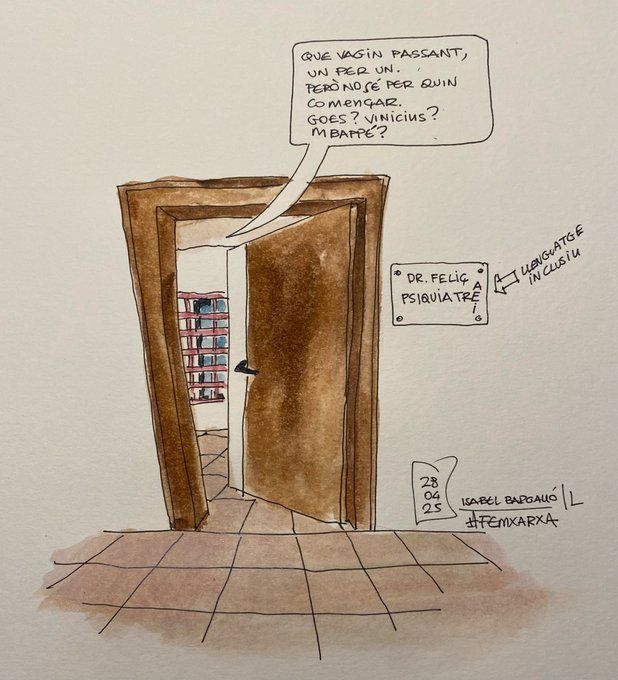 QUE VAGIN PASSANT,
UN PER UN.
PERÒ NO SÉ PER QUIN
COMENÇAR.
GOES? VINICIUS?
MBAPPÉ?
DR. FELIÇ
PSIQUIATRE
A
E
I
LLENGUATGE
INCLUSIU
28
04
25
ISABEL BARGALLÓ
#FEMXARXA